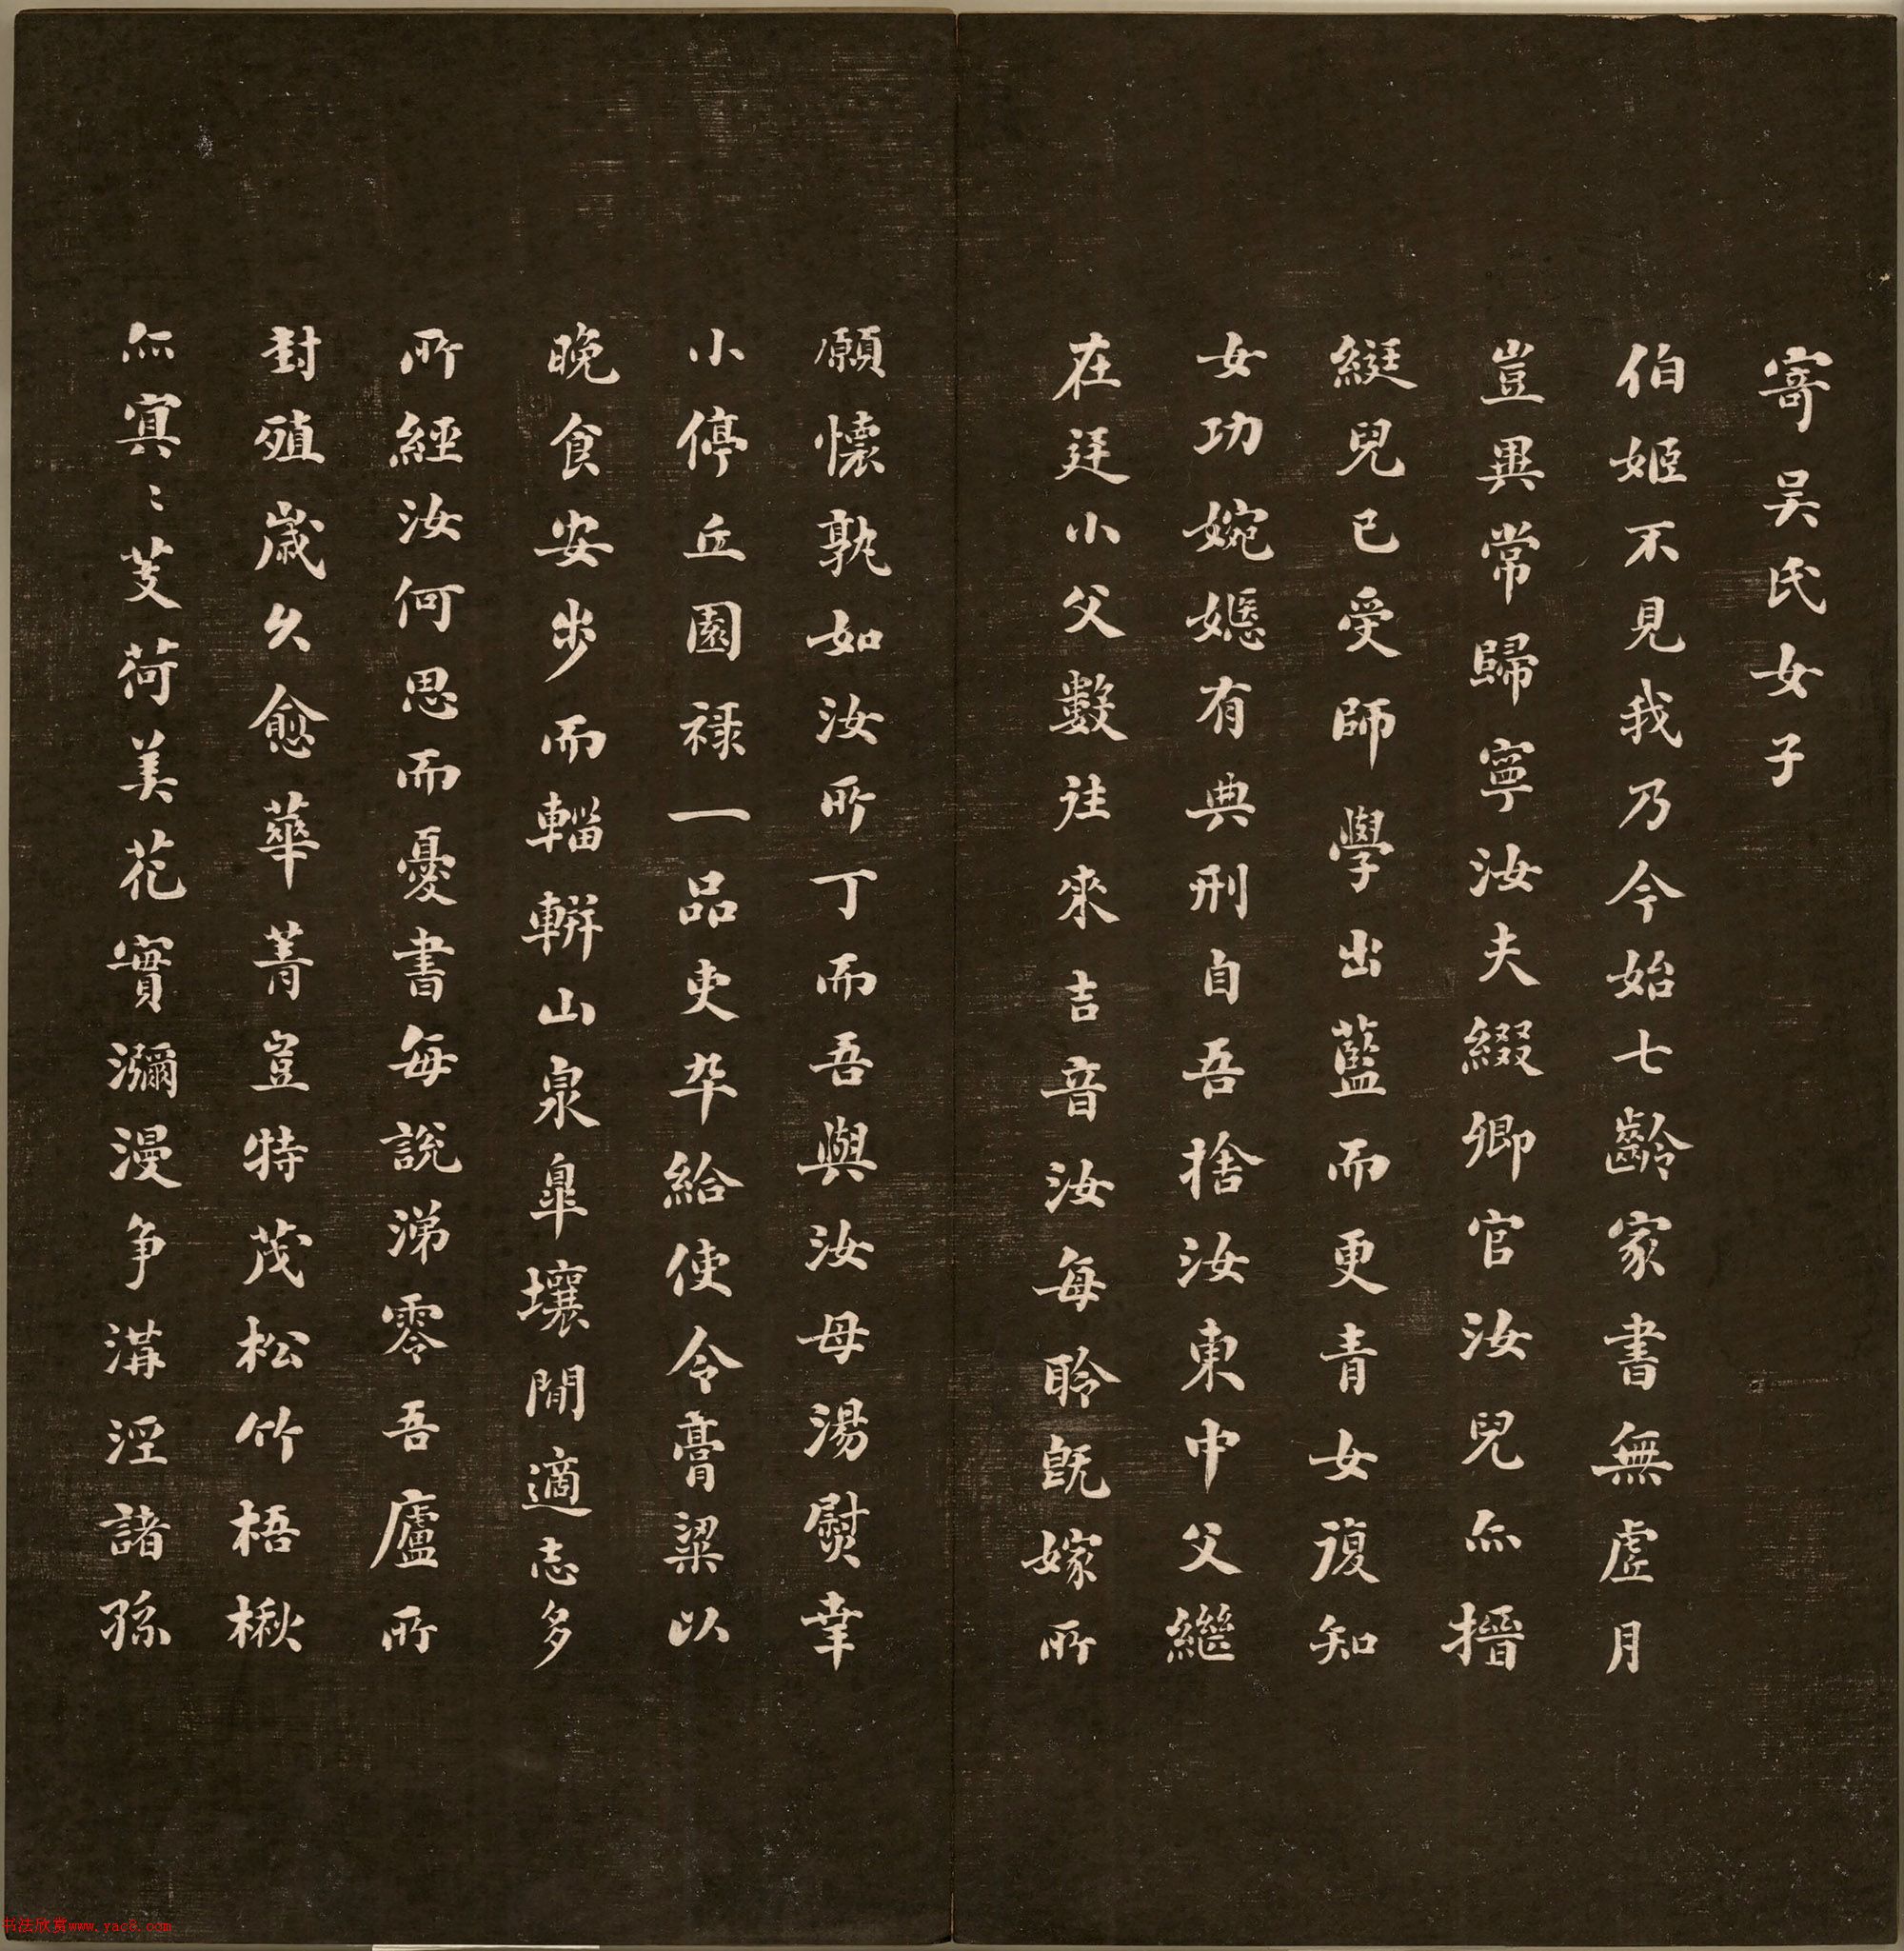 寄吴氏女子
伯姬不見我乃今始七齡家書無虛月
豈異常歸寧汝夫綴卿官汝兒尒搢
綎兒已受師學出藍而更青女復知
女功婉嫕有典刑自吾捨汝東中父繼
在廷小父數往來吉音汝每聆旣嫁所
願懷孰如汝所丁而吾與汝母湯熨幸
小停丘園祿一品吏卒給使令膏粱以
晚食安步而輜軿山泉皐壤閒適志多
所經汝何思而憂書每說涕零吾廬所
封殖歲久愈華菁豈特茂松竹梧楸
尒冥〻芰荷美花實瀰漫争溝涇諸孫
书法欣赏www.yac8.com